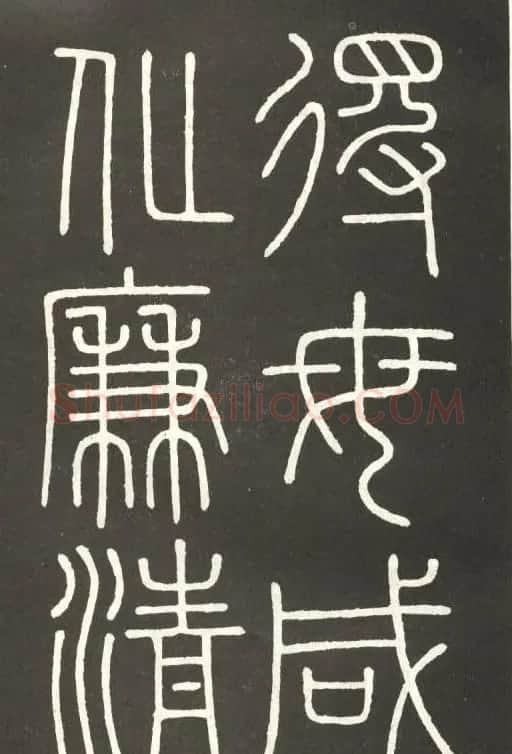 得咸
廉清
Shufaziliao.COM